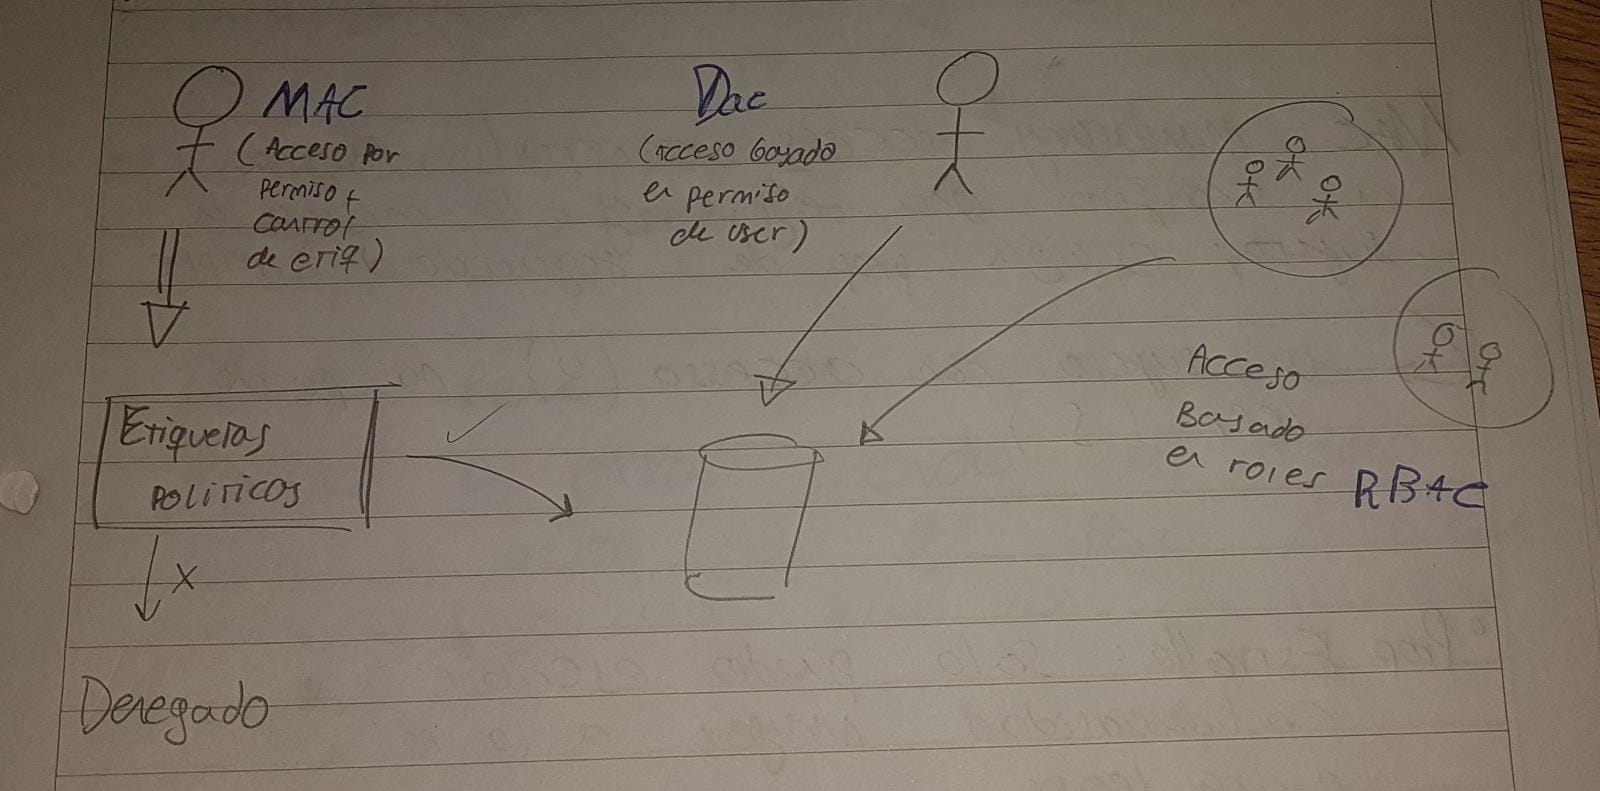 MAC
(Acceso por
permiso +
control
de etiq)
Dac
(acceso basado
en permiso
de user)
Etiquetas
politicos
✓
X
Denegado
Acceso
Basado
en roles RBAC